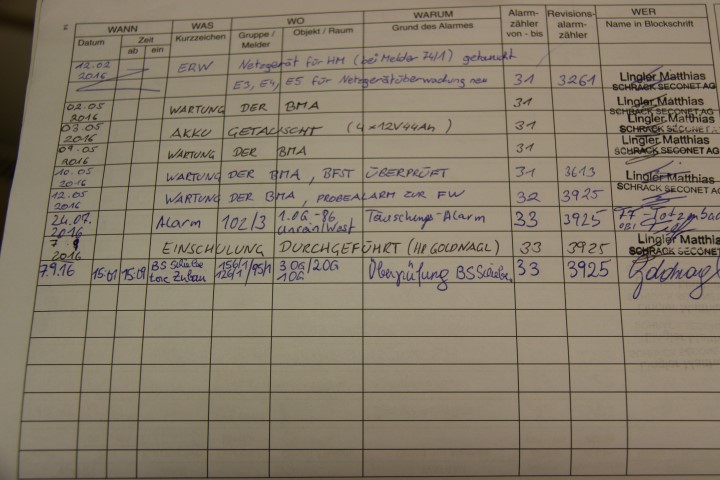 2
WANN WAS WO WARUM Alarm-zähler von - bis Revisions-alarm-zähler WER
Datum Zeit ab ein Kurzzeichen Gruppe / Melder Objekt / Raum Grund des Alarmes Name in Blockschrift
12.02 2016 ERW Netzgerät für HM (bei Melder 74/1) getauscht
E3, E4, E5 für Netzgerätüberwachung neu 31 3261 Lingler Matthias SCHRACK SECONET AG
02.05 2016 WARTUNG DER BMA 31 Lingler Matthias SCHRACK SECONET AG
03.05 2016 AKKU GETAUSCHT (4x12V44Ah) 31 Lingler Matthias SCHRACK SECONET AG
09.05 2016 WARTUNG DER BMA 31 Lingler Matthias SCHRACK SECONET AG
10.05 2016 WARTUNG DER BMA, BFST ÜBERPRÜFT 31 3613 Lingler Matthias SCHRACK SECONET AG
12.05 2016 WARTUNG DER BMA, PROBEALARM ZUR FW 32 3925
24.07. 2016 Alarm 102/3 1.OG - 86 West Täuschungs-Alarm 33 3925
7.9 2016 EINSCHULUNG DURCHGEFÜHRT (HR GOLDNAGL) 33 3925 Lingler Matthias SCHRACK SECONET
7.9.16 15:01 15:09 BS Schieber Zubau 156/1 / 95/1 126/1 3OG/2OG 1OG Überprüfung BS Schieber 33 3925 Goldnagl